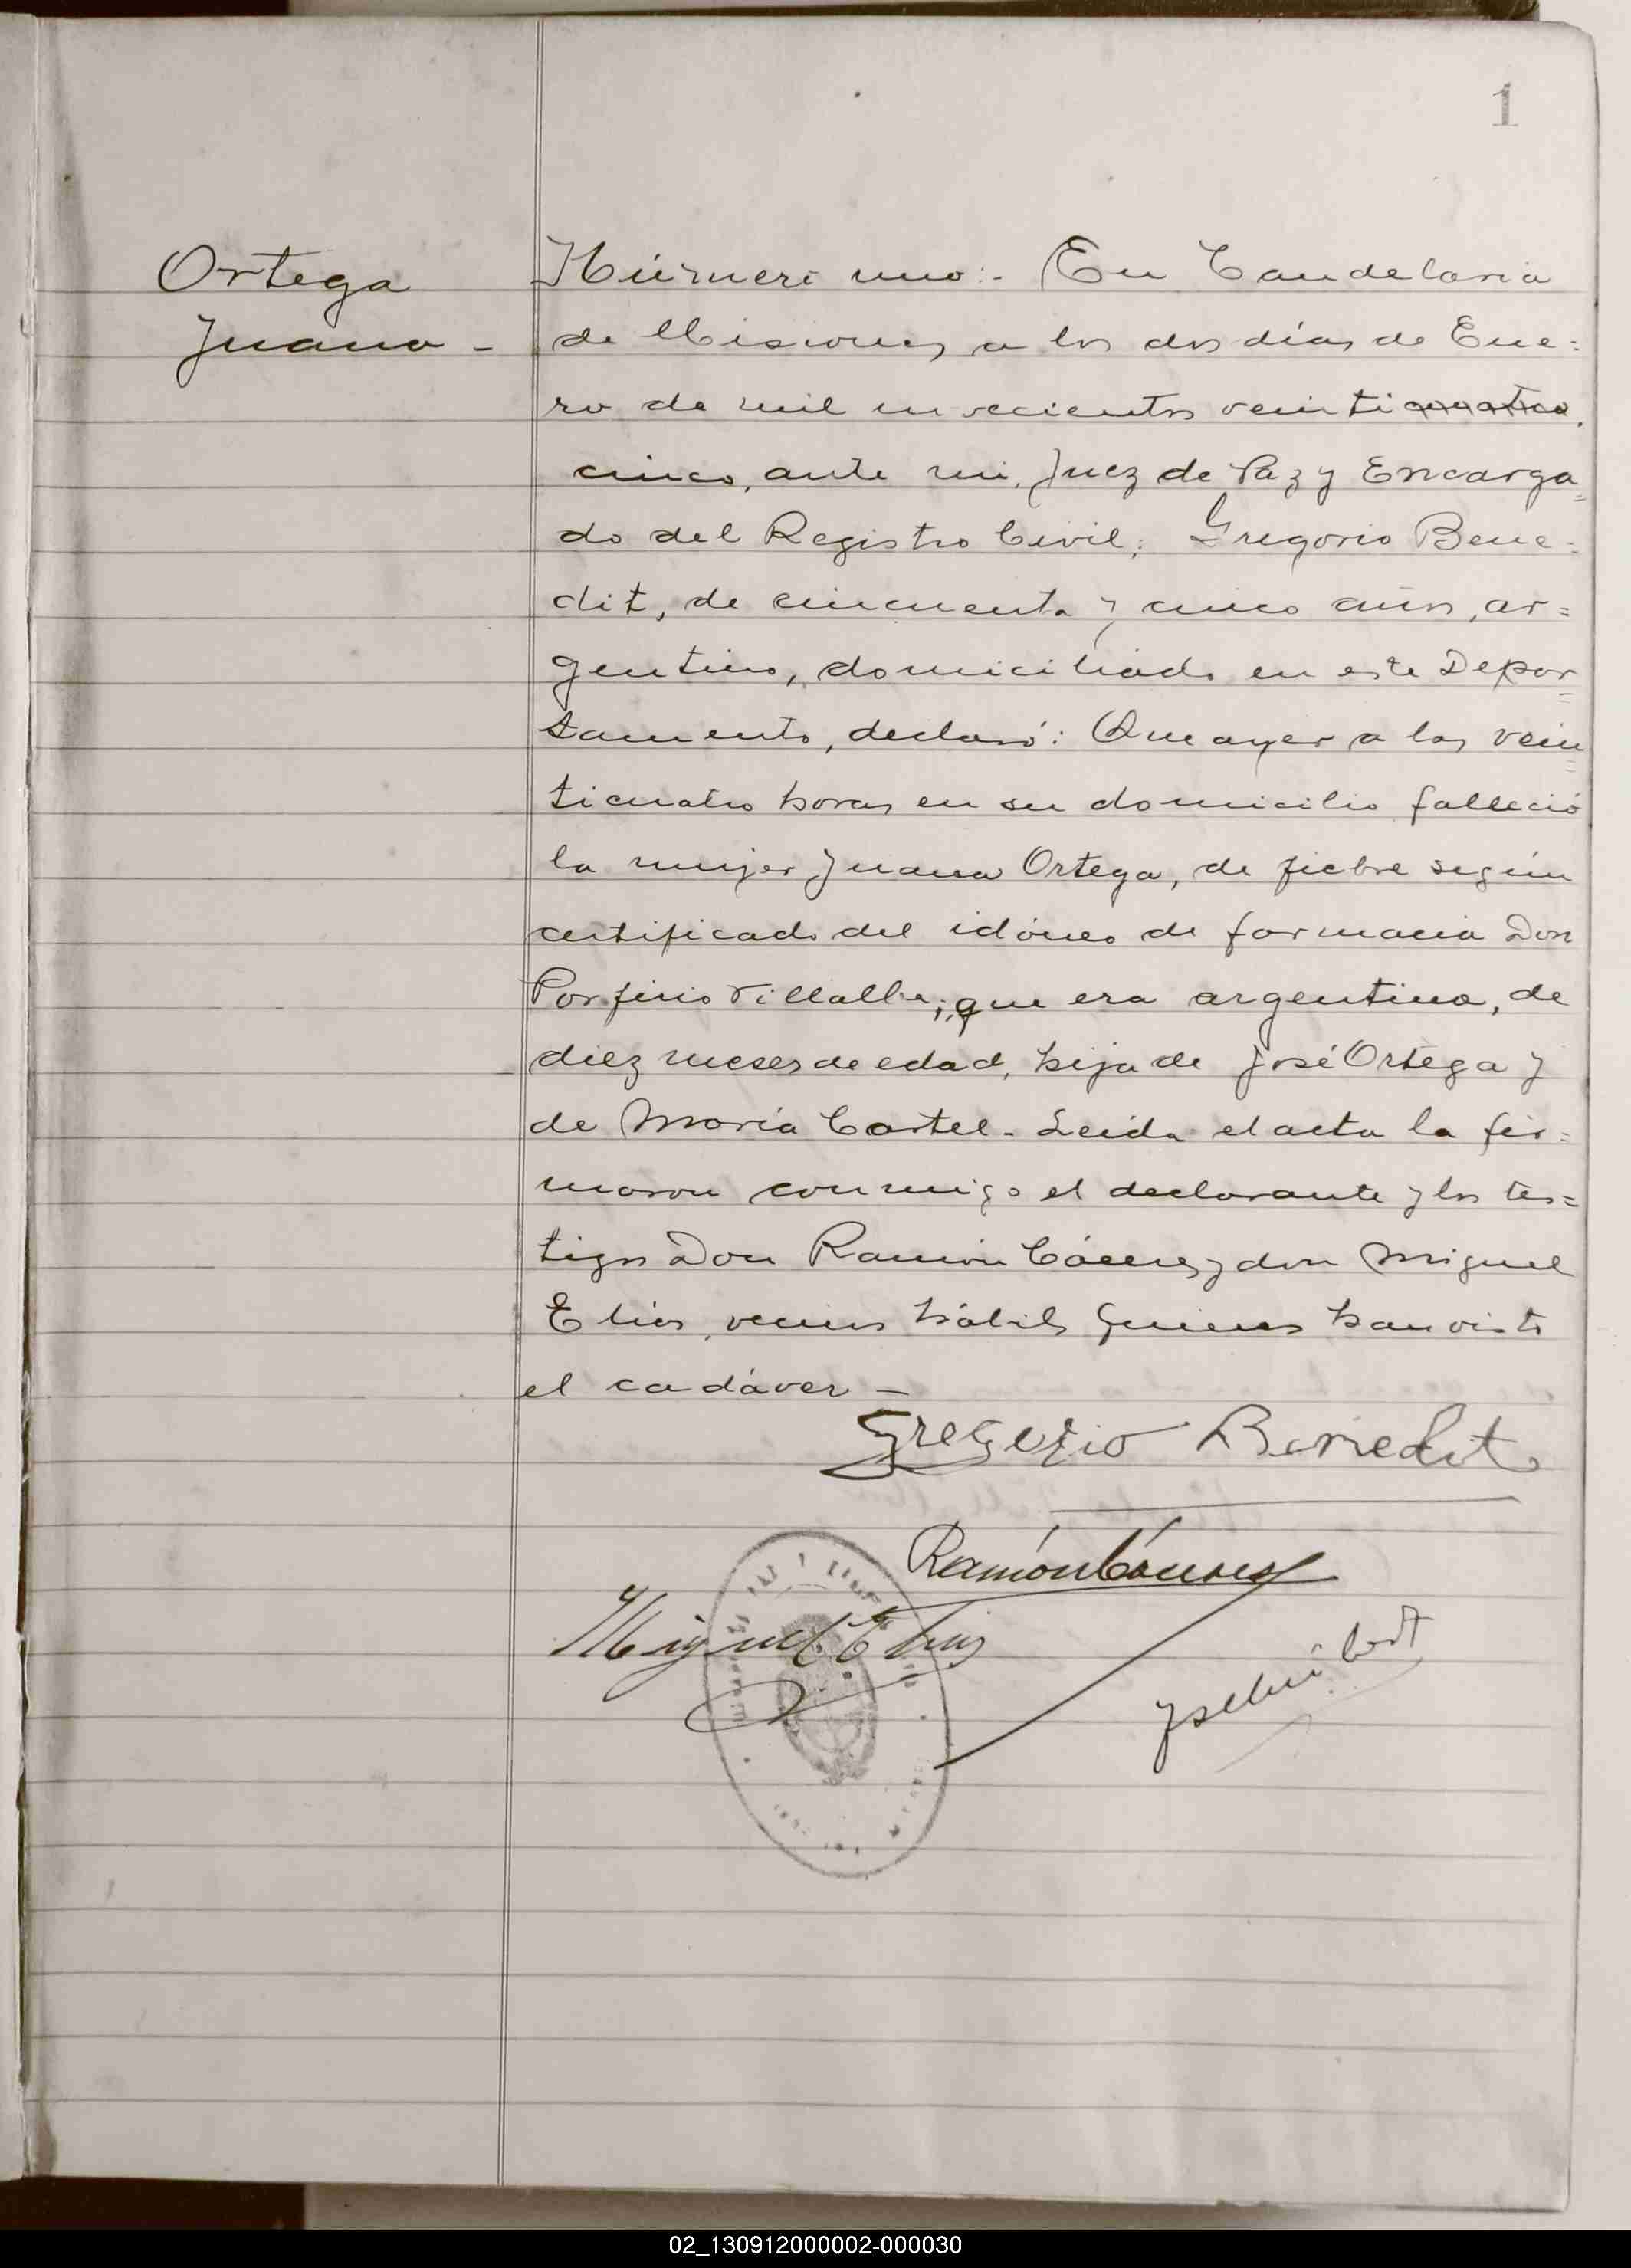 1
Ortega
Juana -
Número uno:- En Candelaria
de Misiones, a los dos días de Ene=
ro de mil novecientos veinticuatro.
cinco, ante mi, Juez de Paz y Encarga=
do del Registro Civil; Gregorio Bene=
dit, de cincuenta y cinco años, ar=
gentino, domiciliado en este Depar=
tamento, declaró: Que ayer a las vein=
ticuatro horas en su domicilio falleció
la mujer Juana Ortega, de fiebre según
certificado del idóneo de farmacia Don
Porfirio Villalba; que era argentina, de
diez meses de edad, hija de José Ortega y
de María Cartel. Leída el acta la fir=
maron conmigo el declarante y los tes=
tigos Don Ramón Cáceres y don Miguel
Elías, vecinos hábiles quienes han visto
el cadáver -
Gregorio Benedit
Ramón Cáceres
Miguel Elias
02_130912000002-000030